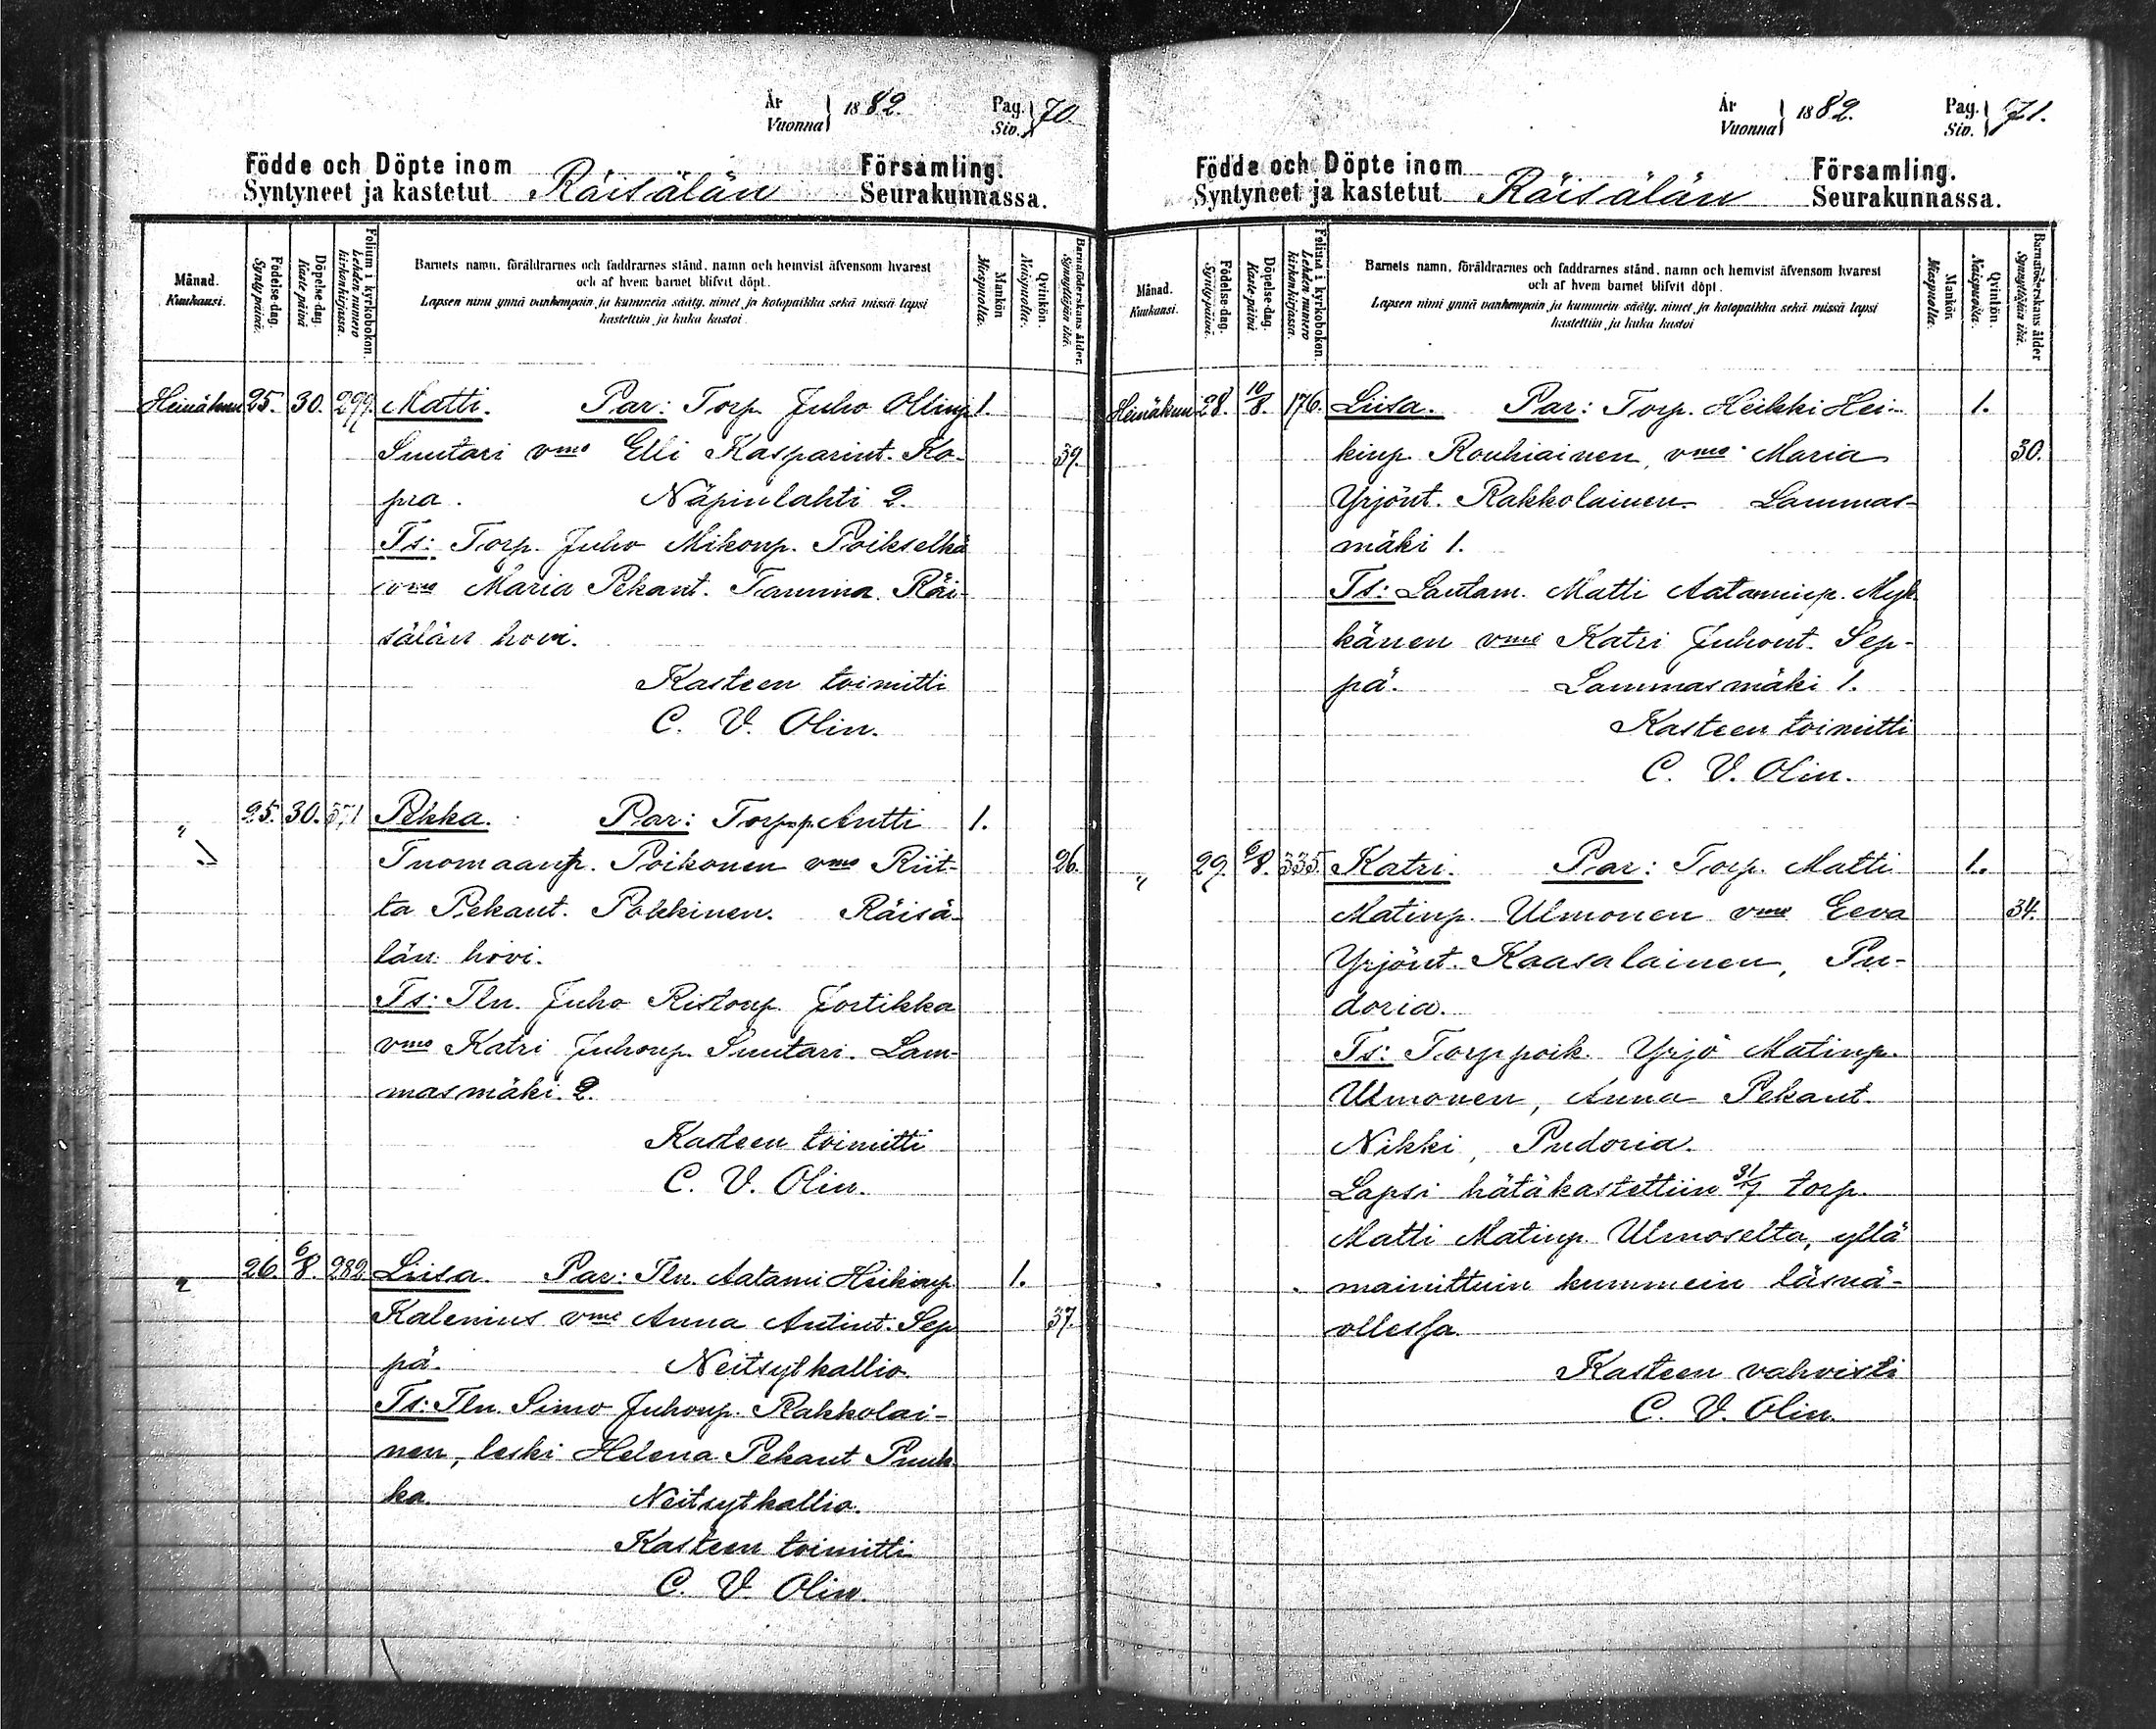 År
Vuonna 1882.
Pag.
Siv. 70.
Födde och Döpte inom Församling.
Syntyneet ja kastetut Räisälän Seurakunnassa.
Månad.
Kuukausi.
Födelse-dag.
Syntypäivä.
Döpelse-dag.
Kaste-päivä
Folium i kyrkoboken.
Lehden numero
kirkonkirjassa.
Barnets namn, föräldrarnes och faddrarnes stånd, namn och hemvist äfvensom hvarest
och af hvem barnet blifvit döpt.
Lapsen nimi ynnä vanhempain ja kummein sääty, nimet ja kotopaikka sekä missä lapsi
kastettiin ja kuka kastoi
Mankön
Miespuolia.
Qvinkön.
Naispuolia.
Barnaföderskans ålder.
Synnyttäjän ikä.
Heinäkuu 25. 30. 299. Matti. Par: Torp. Juho Ollinp. 1.
Suutari vmo Elli Kasparint. Ko- 39.
pra. Näpinlahti 2.
Ts: Torp. Juho Mikonp. Poikselkä
vmo Maria Pekant. Tamma. Räi-
sälän hovi.
Kasteen toimitti
C. V. Olin.
" 25. 30. 371 Pekka. Par: Torpp. Antti 1.
Tuomaanp. Poikonen vmo Riit- 26.
ta Pekant. Pokkinen. Räisä-
län hovi.
Ts: Tln. Juho Ristonp. Jortikka
vmo Katri Juhonp. Suutari. Lam-
masmäki 2.
Kasteen toimitti
C. V. Olin.
" 26. 6/8. 282 Liisa. Par: Tln. Aatami Heikinp. 1.
Kalenius vmo Anna Antint. Sep 37.
pä. Neitsytkallio.
Ts: Tln. Simo Juhonp. Rakkolai-
nen, leski Helena Pekant Puuk
ka. Neitsytkallio.
Kasteen toimitti
C. V. Olin.
År
Vuonna 1882.
Pag.
Siv. 71.
Födde och Döpte inom Församling.
Syntyneet ja kastetut Räisälän Seurakunnassa.
Månad.
Kuukausi.
Födelse-dag.
Syntypäivä.
Döpelse-dag.
Kaste-päivä
Folium i kyrkoboken.
Lehden numero
kirkonkirjassa.
Barnets namn, föräldrarnes och faddrarnes stånd, namn och hemvist äfvensom hvarest
och af hvem barnet blifvit döpt.
Lapsen nimi ynnä vanhempain ja kummein sääty, nimet ja kotopaikka sekä missä lapsi
kastettiin ja kuka kastoi
Mankön
Miespuolia.
Qvinkön.
Naispuolia.
Barnaföderskans ålder
Synnyttäjän ikä.
Heinäkuu 28. 10/8. 176. Liisa. Par: Torp. Heikki Hei- 1.
kinp. Rouhiainen, vmo Maria 30.
Yrjönt. Rakkolainen. Lammas-
mäki 1.
Ts: Lautam. Matti Aataminp. Myk
känen vmo Katri Juhont. Sep-
pä. Lammasmäki 1.
Kasteen toimitti
C. V. Olin.
" 29. 6/8. 335. Katri. Par: Torp. Matti 1.
Matinp. Ulmonen vmo Eeva 34.
Yrjönt. Kaasalainen, Pu-
doria.
Ts: Torppoik. Yrjö Matinp.
Ulmonen, Anna Pekant.
Nikki, Pudoria.
Lapsi hätäkastettiin 31/7 torp.
Matti Matinp. Ulmoselta, yllä
mainittuin kummein läsnä-
ollessa.
Kasteen vahvisti
C. V. Olin.